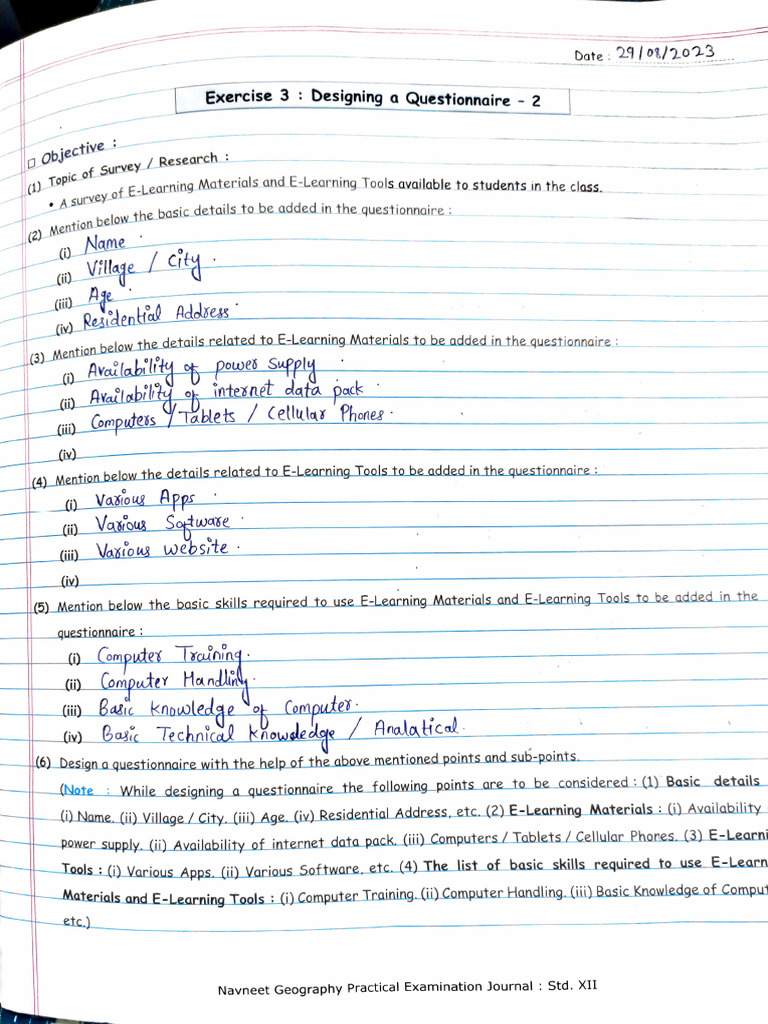 Date : 29/08/2023
Exercise 3 : Designing a Questionnaire - 2
□ Objective :
(1) Topic of Survey / Research :
• A survey of E-Learning Materials and E-Learning Tools available to students in the class.
(2) Mention below the basic details to be added in the questionnaire :
(i) Name .
(ii) Village / City .
(iii) Age .
(iv) Residential Address .
(3) Mention below the details related to E-Learning Materials to be added in the questionnaire :
(i) Availability of power supply .
(ii) Availability of internet data pack .
(iii) Computers / Tablets / Cellular Phones .
(iv)
(4) Mention below the details related to E-Learning Tools to be added in the questionnaire :
(i) Various Apps .
(ii) Various Software .
(iii) Various website .
(iv)
(5) Mention below the basic skills required to use E-Learning Materials and E-Learning Tools to be added in the
questionnaire :
(i) Computer Training.
(ii) Computer Handling.
(iii) Basic knowledge of Computer.
(iv) Basic Technical knowdedge / Analatical.
(6) Design a questionnaire with the help of the above mentioned points and sub-points.
(Note : While designing a questionnaire the following points are to be considered : (1) Basic details
(i) Name. (ii) Village / City. (iii) Age. (iv) Residential Address, etc. (2) E-Learning Materials : (i) Availability
power supply. (ii) Availability of internet data pack. (iii) Computers / Tablets / Cellular Phones. (3) E-Learni
Tools : (i) Various Apps. (ii) Various Software, etc. (4) The list of basic skills required to use E-Learn
Materials and E-Learning Tools : (i) Computer Training. (ii) Computer Handling. (iii) Basic Knowledge of Comput
etc.)
Navneet Geography Practical Examination Journal : Std. XII